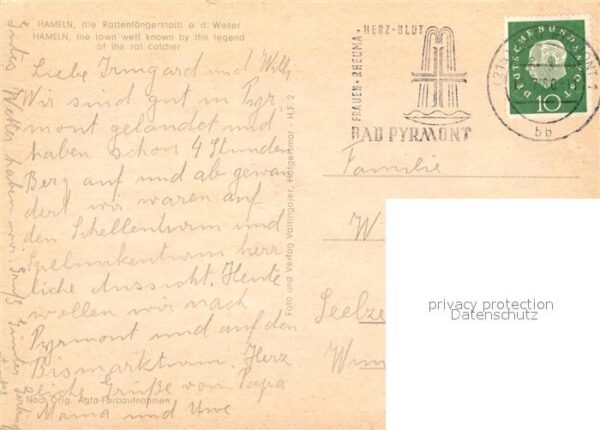 HAMELN, die Rattenfängerstadt a. d. Weser
HAMELN, the town well known by the legend
of the rat catcher
Liebe Irmgard und Willi
Wir sind gut in Pyr
mont gelandet und
haben schon 4 Stunden
Berg auf und ab gewan
dert wir waren auf
den Schellenturm und
Spelunkenturm herr
liche Aussicht. Heute
wollen wir nach
Pyrmont und auf den
Bismarkturm. Herz
liche Grüße von Papa
Mama und Uwe
Nach Orig. Agfa-Farbaufnahmen
Gutes Wetter haben wir. Gruß
Foto und Verlag Vaitlingojer, Hofgeismar · H.F. 2
FRAUEN - RHEUMA -
HERZ - BLUT
BAD PYRMONT
DEUTSCHE BUNDESPOST
10
bb
Familie
W
Seelze
Wun
privacy protection
Datenschutz